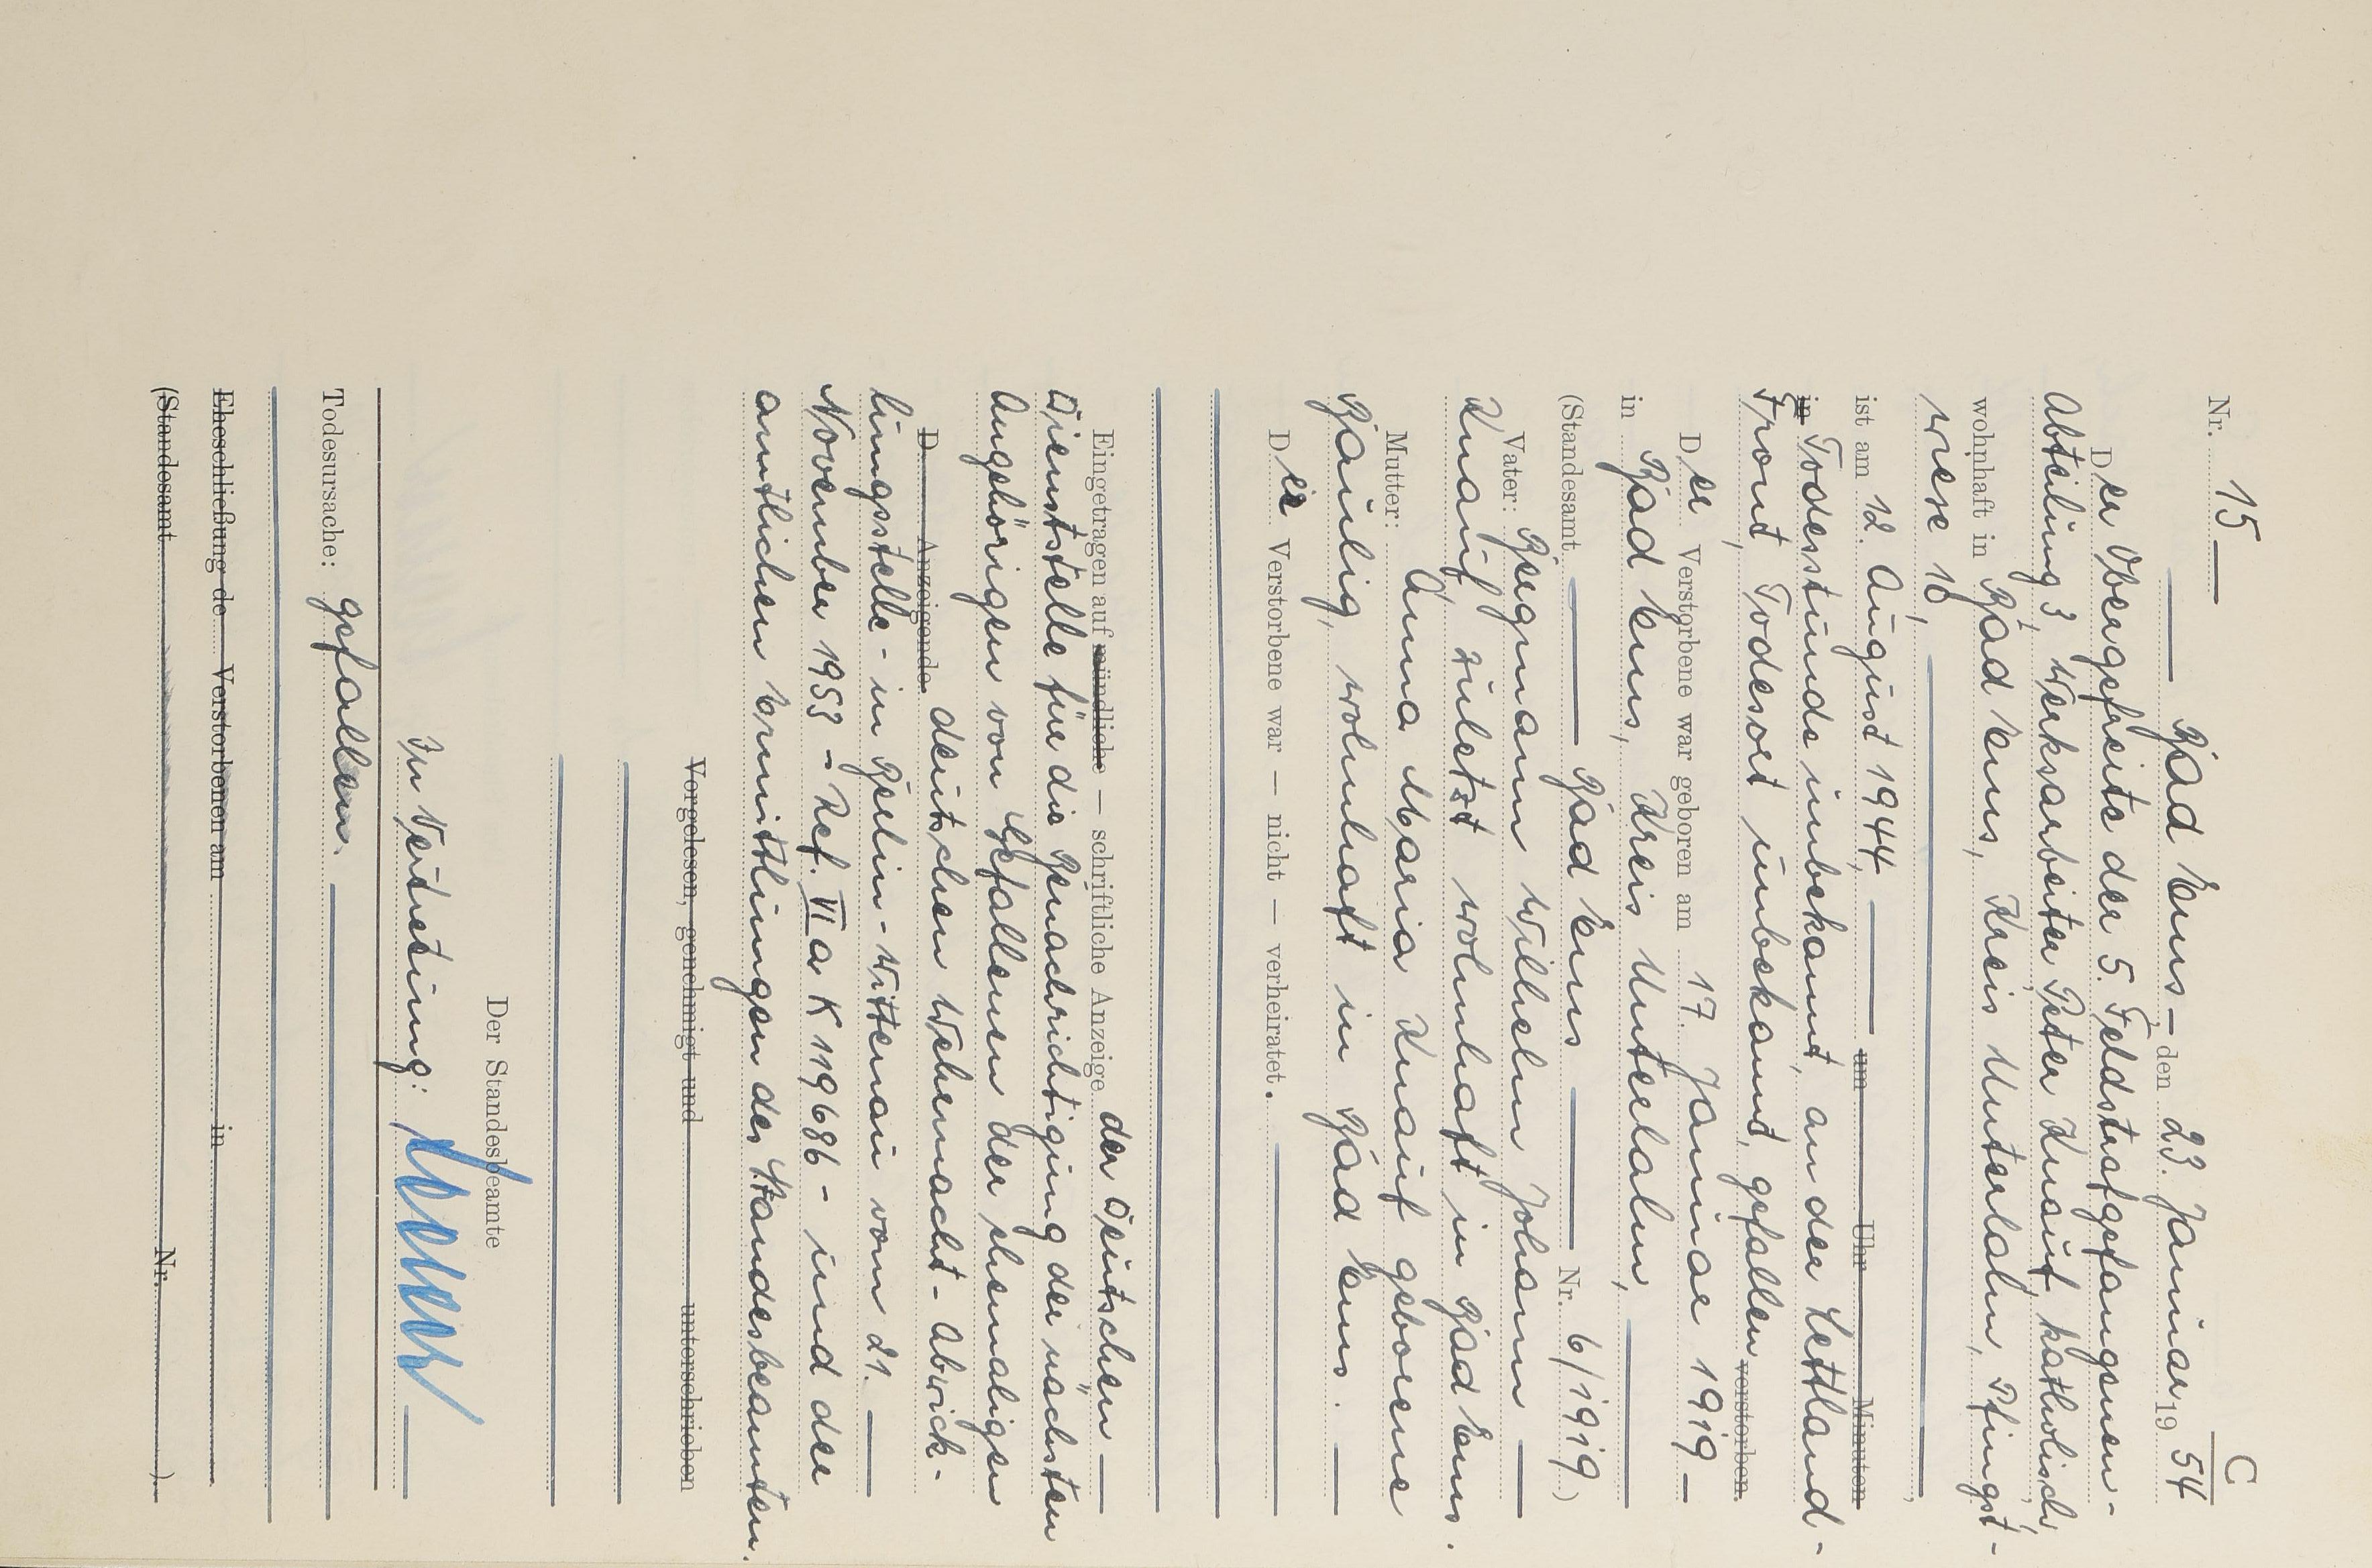 C
Nr. 15
Bad Ems, den 23. Januar 1954
Der Obergefreite der 5. Feldstrafgefangenen-
Abteilung 3, Werksarbeiter Peter Knauf, katholisch,
wohnhaft in Bad Ems, Kreis Unterlahn, Pfingst-
wiese 10,
ist am 12. August 1944, um Uhr Minuten
in Todesstunde unbekannt, an der Lettland-
Front, Todesort unbekannt, gefallen verstorben.
Der Verstorbene war geboren am 17. Januar 1919 -
in Bad Ems, Kreis Unterlahn,
(Standesamt Bad Ems Nr. 6/1919.)
Vater: Bergmann Wilhelm Johann
Knauf zuletzt wohnhaft in Bad Ems.
Mutter: Anna Maria Knauf geborene
, wohnhaft in Bad Ems.
Der Verstorbene war — nicht — verheiratet.
Eingetragen auf mündliche — schriftliche Anzeige der Deutschen
Dienststelle für die Benachrichtigung der nächsten
Angehörigen von Gefallenen der ehemaligen
D Anzeigende deutschen Wehrmacht - Abwick-
lungsstelle - in Berlin-Wittenau vom 21.
November 1953 - Ref. VI a K 119686 - und der
amtlichen Ermittlungen des Standesbeamten.
Vorgelesen, genehmigt und unterschrieben
Der Standesbeamte
In Vertretung:
Todesursache: gefallen.
Eheschließung de Verstorbenen am in
(Standesamt Nr. ).